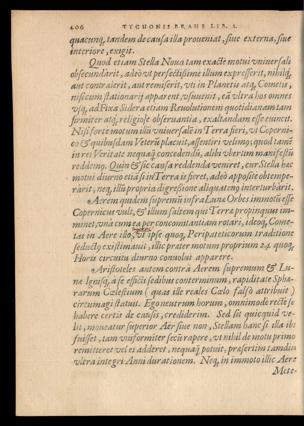 406 TYCHONIS BRAHE LIB. I.
quacunq; tandem de causa illa proueniat, siue externa, siue
interiore, exigit.
Quod etiam Stella Noua tam exacte motui vniuersali
obsecundarit, adeò vt perfectissime illum expresserit, nihilq;
aut contraxerit, aut remiserit, vti in Planetis atq; Cometis,
nisi cum stationarij apparent, vsu uenit, eâ vltra hos omnes
vsq; ad Fixa Sidera etiam Reuolutionem quotidianam tam
firmiter atq; religiose obseruantia, exaltandam esse euincit.
Nisi forte motum illũ vniuersalẽ in Terra fieri, vt Coperni-
co & quibusdam Veterũ placuit, assentiri velimus; quod tamẽ
in rei Veritate nequaq̃ concedendũ, alibi vberius manifestũ
reddemus. Quin & sic causa reddenda veniret, cur Stella hæc
motui diurno etiãsi in Terra is fieret, adeò apposite obtempe-
rârit, neq; illũ propria digressione aliquatenus interturbârit.
Aerem quidem supremũ infra Lunæ Orbes immotũ esse
Copernicus vult, & illum saltem qui Terræ propinquus im-
minet, vnà cum ea per concomitantiam rotari, ideoq; Come-
tas in Aere illo, vt ipse quoq; Peripateticorum traditione
seductus existimauit, illic præter motum proprium 24. quoq;
Horis circuitu diurno conuolui apparere.
Aristoteles autem contrà Aerem supremum & Lu-
næ Ignisq;, à se effictis sedibus conterminum, rapiditate Sphæ-
rarum Cælestium (quas ille reales Cælo falsò attribuit)
circumagi statuit. Ego neutrum horum, omnimodè rectè se
habere certis de causis, crediderim. Sed sit quicquid ve-
lit, moueatur superior Aer siue non, Stellam hanc si illa ibi
fuisset, tam vniformiter secũ rapere, vt nihil de motu primo
remitteret vel ei adderet, nequaq̃ potuit, præsertim tamdiu
vltra integri Anni durationem. Neq; in immoto illic Aere
Mete-